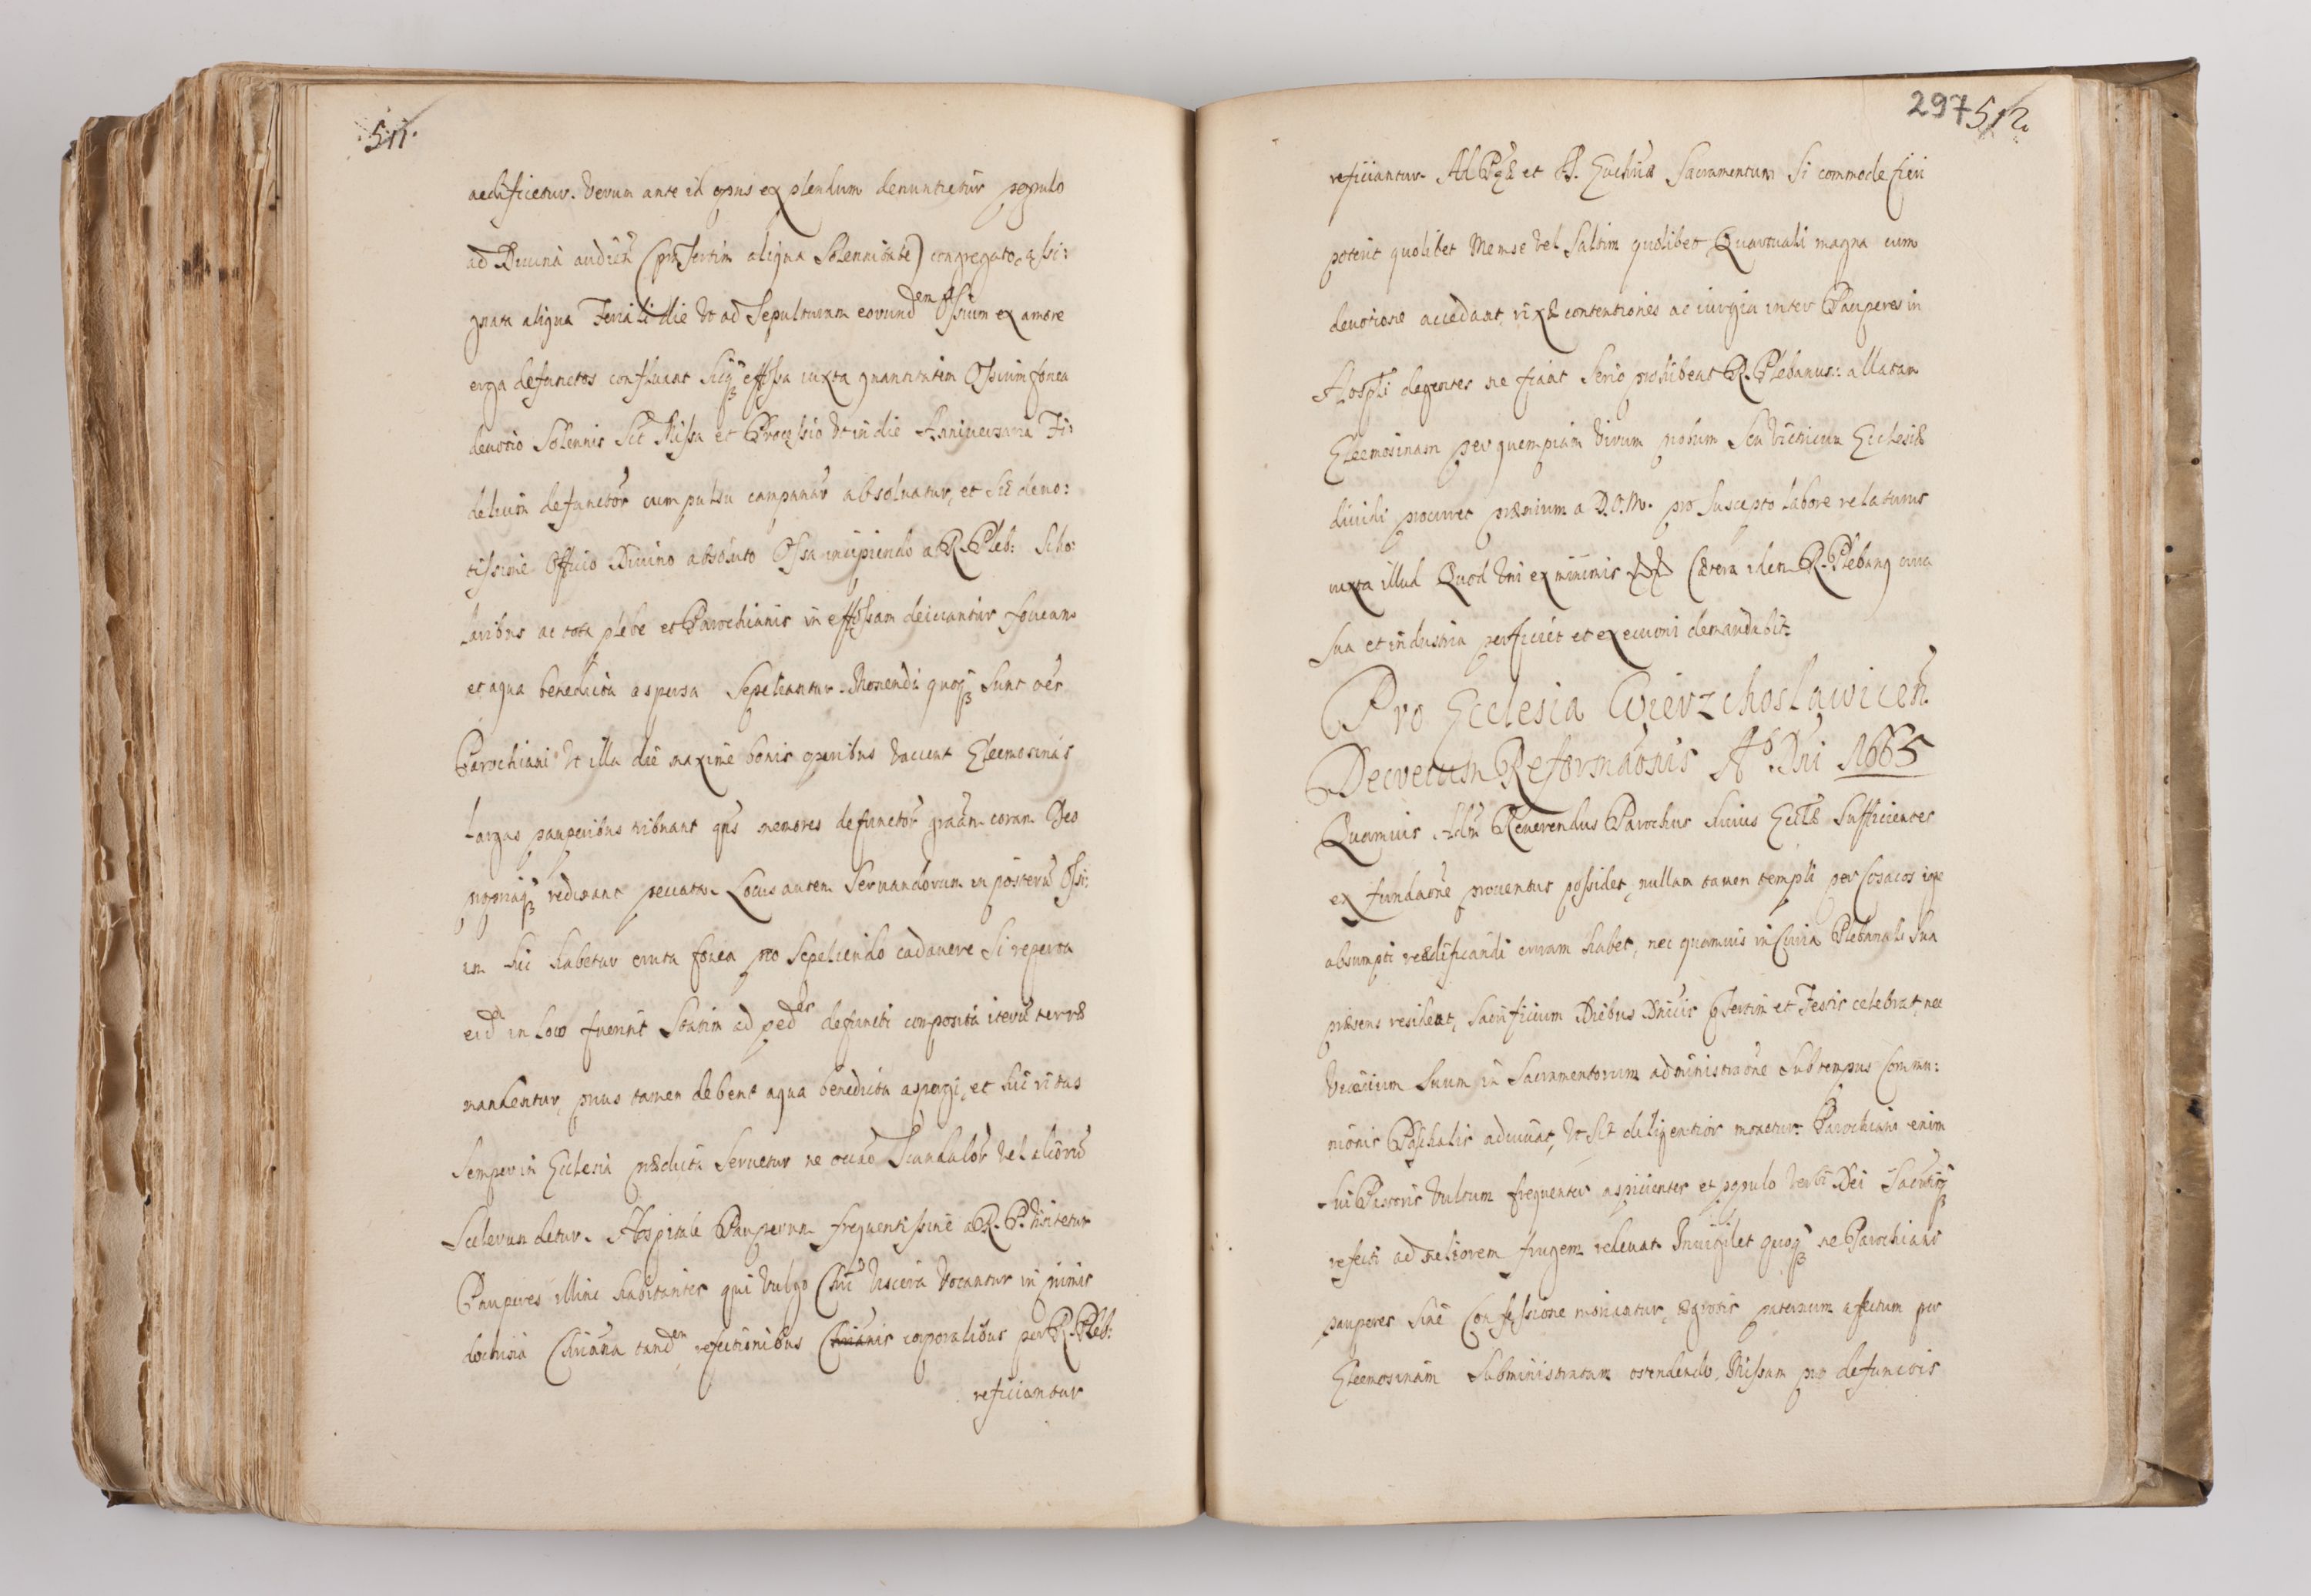 511.
aedificetur. Verum ante id opus explendum denuntietur populo
ad Divina audien̄ (præsertim aliqua Solennitate) congregato, assi:
gnata aliqua Feriali die Vt ad Sepulturam eorundem Ossium ex amore
erga defunctos confluant sicq3 effossa iuxta quantitatem Ossium fovea
devotio Solennis Sit Missa et Processio Vt in die Anniversaria Fi:
delium defunctor̄ cum pulsu campanar̄ absolvatur, et Sic devo:
tissime Officio Divino absoluto Ossa incipiendo a R. Pleb: Scho:
laribus ac tota plebe et Parochianis in effossam deiiciantur foveam
et aqua benedicta aspersa Sepeliantur. Monendi quoq3 Sunt oēs
Parochiani Vt illa die maxime bonis operibus vacent Eleemosinas
Largas pauperibus tribuant qūs memores defunctor̄ gratiam coram Deo
propriaq3 redimant peccata. Locus autem Servandorum in posterū Ossi:
um hic habetur eruta fovea pro Sepeliendo cadavere Si reperta
eid in loco fuerint Statim ad pedes defuncti composita iterū terræ
mandentur, prius tamen debent aqua benedicta aspergi, et hic ritus
Semper in Ecclesia prædicta Servetur ne occāo Scandalor̄ vel aliorū
Scelerum detur. Hospitale Pauperum frequentissime a R. P. Visitetur
Pauperes illine habitantes qui Vulgo Chri Viscera Vocantur in primis
doctrina Chriāna tandem refectionibus Chriānis corporalibus per R. Pleb:
reficiantur
297 512.
reficiantur. Ad et Euchriæ Sacramentum Si commode fieri
poterit quolibet Mense Vel Saltim quolibet Quartuali magna cum
devotione accedant, rixæ contentiones ac iurgia inter Pauperes in
Hospli degentes ne fiant Serio prohibeat R. Plebanus: allatam
Eleemosinam per quempiam Virum probum Seu Vitricum Ecclesiæ
dividi procuret præmium a D. O. M. pro Suscepto labore relaturus
iuxta illud Quod Vni ex minimis Cætera idem R. Plebang cura
sua et industria perficiet et executioni demandabit.
Pro Ecclesia Wierzchoslawicen̄.
Decretum Reformāōnis Aō. Dni 1665
Quamvis Adm̄ Reverendus Parochus huius Eccl̄æ Sufficientes
ex fundaōne proventus possidet, nullam tamen templi per Cosacos igne
absumpti reædificandi curam habet, nec quamvis in Curia Plebanali Sua
præsens resideat, Sacrificium Diebus Dnicis pSertim et Festis celebrat, nec
Vicarium Suum in Sacramentorum administraōne Sub tempus Commu:
nionis Paschalis adiuvat, Vt Sit diligentior monetur. Parochiani enim
Sui Pastoris Vultum frequenter aspicientes et populo Verbi Dei Sacrisq3
refecti ad meliorem frugem relevat. Invigilet quoq3 ne Parochiani
pauperes Sine Confessione moriantur, ægrotis paternum afectum per
Eleemosinam Subministratam ostendendo, Missam pro defunctis